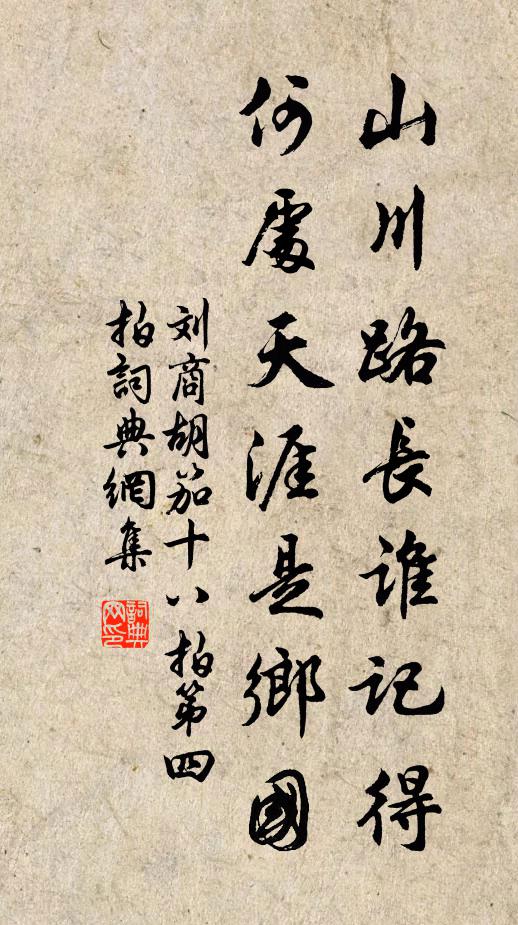 山川路長誰記得
何處天涯是鄉國
刘商胡笳十八拍第四
拍詞典網集
詞典网印